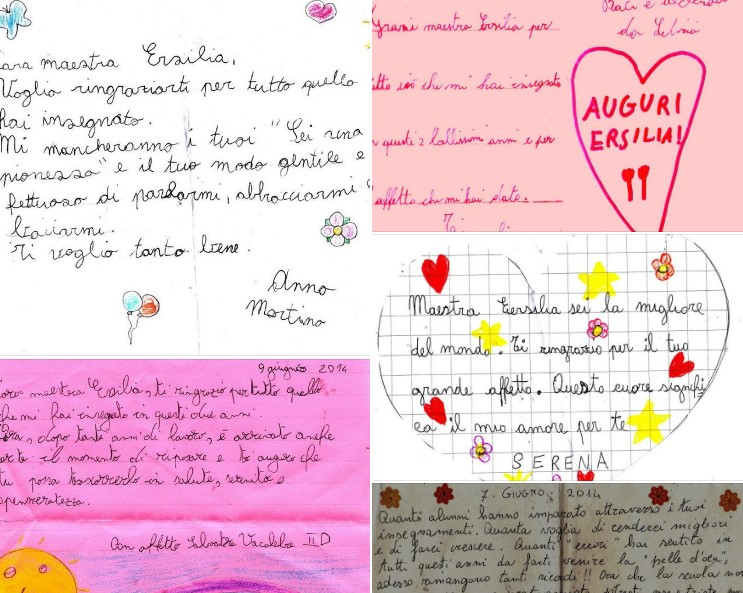 ara maestra Ersilia,
Voglio ringraziarti per tutto quello
hai insegnato.
Mi mancheranno i tuoi "Sei una
pionessa" e il tuo modo gentile e
fettuoso di parlarmi, abbracciarmi
baciarmi.
Ti voglio tanto bene.
Anna
Martina
Baci e
da
Grazie maestra Ersilia per
tutto ciò che mi hai insegnato
n questi 2 bellissimi anni e per
affetto che mi hai dato.
AUGURI
ERSILIA!
Maestra Eersilia sei la migliore
del mondo. Ti ringrazio per il tuo
grande affetto. Questo cuore signifi
ca il mio amore per te
SERENA
9 giugno 2014
maestra Ersilia, ti ringrazio per tutto quello
che mi hai insegnato in questi due anni.
Ora, dopo tanti anni di lavoro, è arrivato anche
per te il momento di riposare e ti auguro che
tu possa trascorrerlo in salute, serenità e
spensieratezza.
Con affetto Salvatore II D
7. GIUGNO. 2014
Quanti alunni hanno imparato attraverso i tuoi
insegnamenti. Quanta voglia di renderci migliori
e di farci crescere. Quanti "errori" hai sentito in
tutti questi anni da farti venire la "pelle d'oca",
adesso rimangono tanti ricordi!! Ora che la scuola non